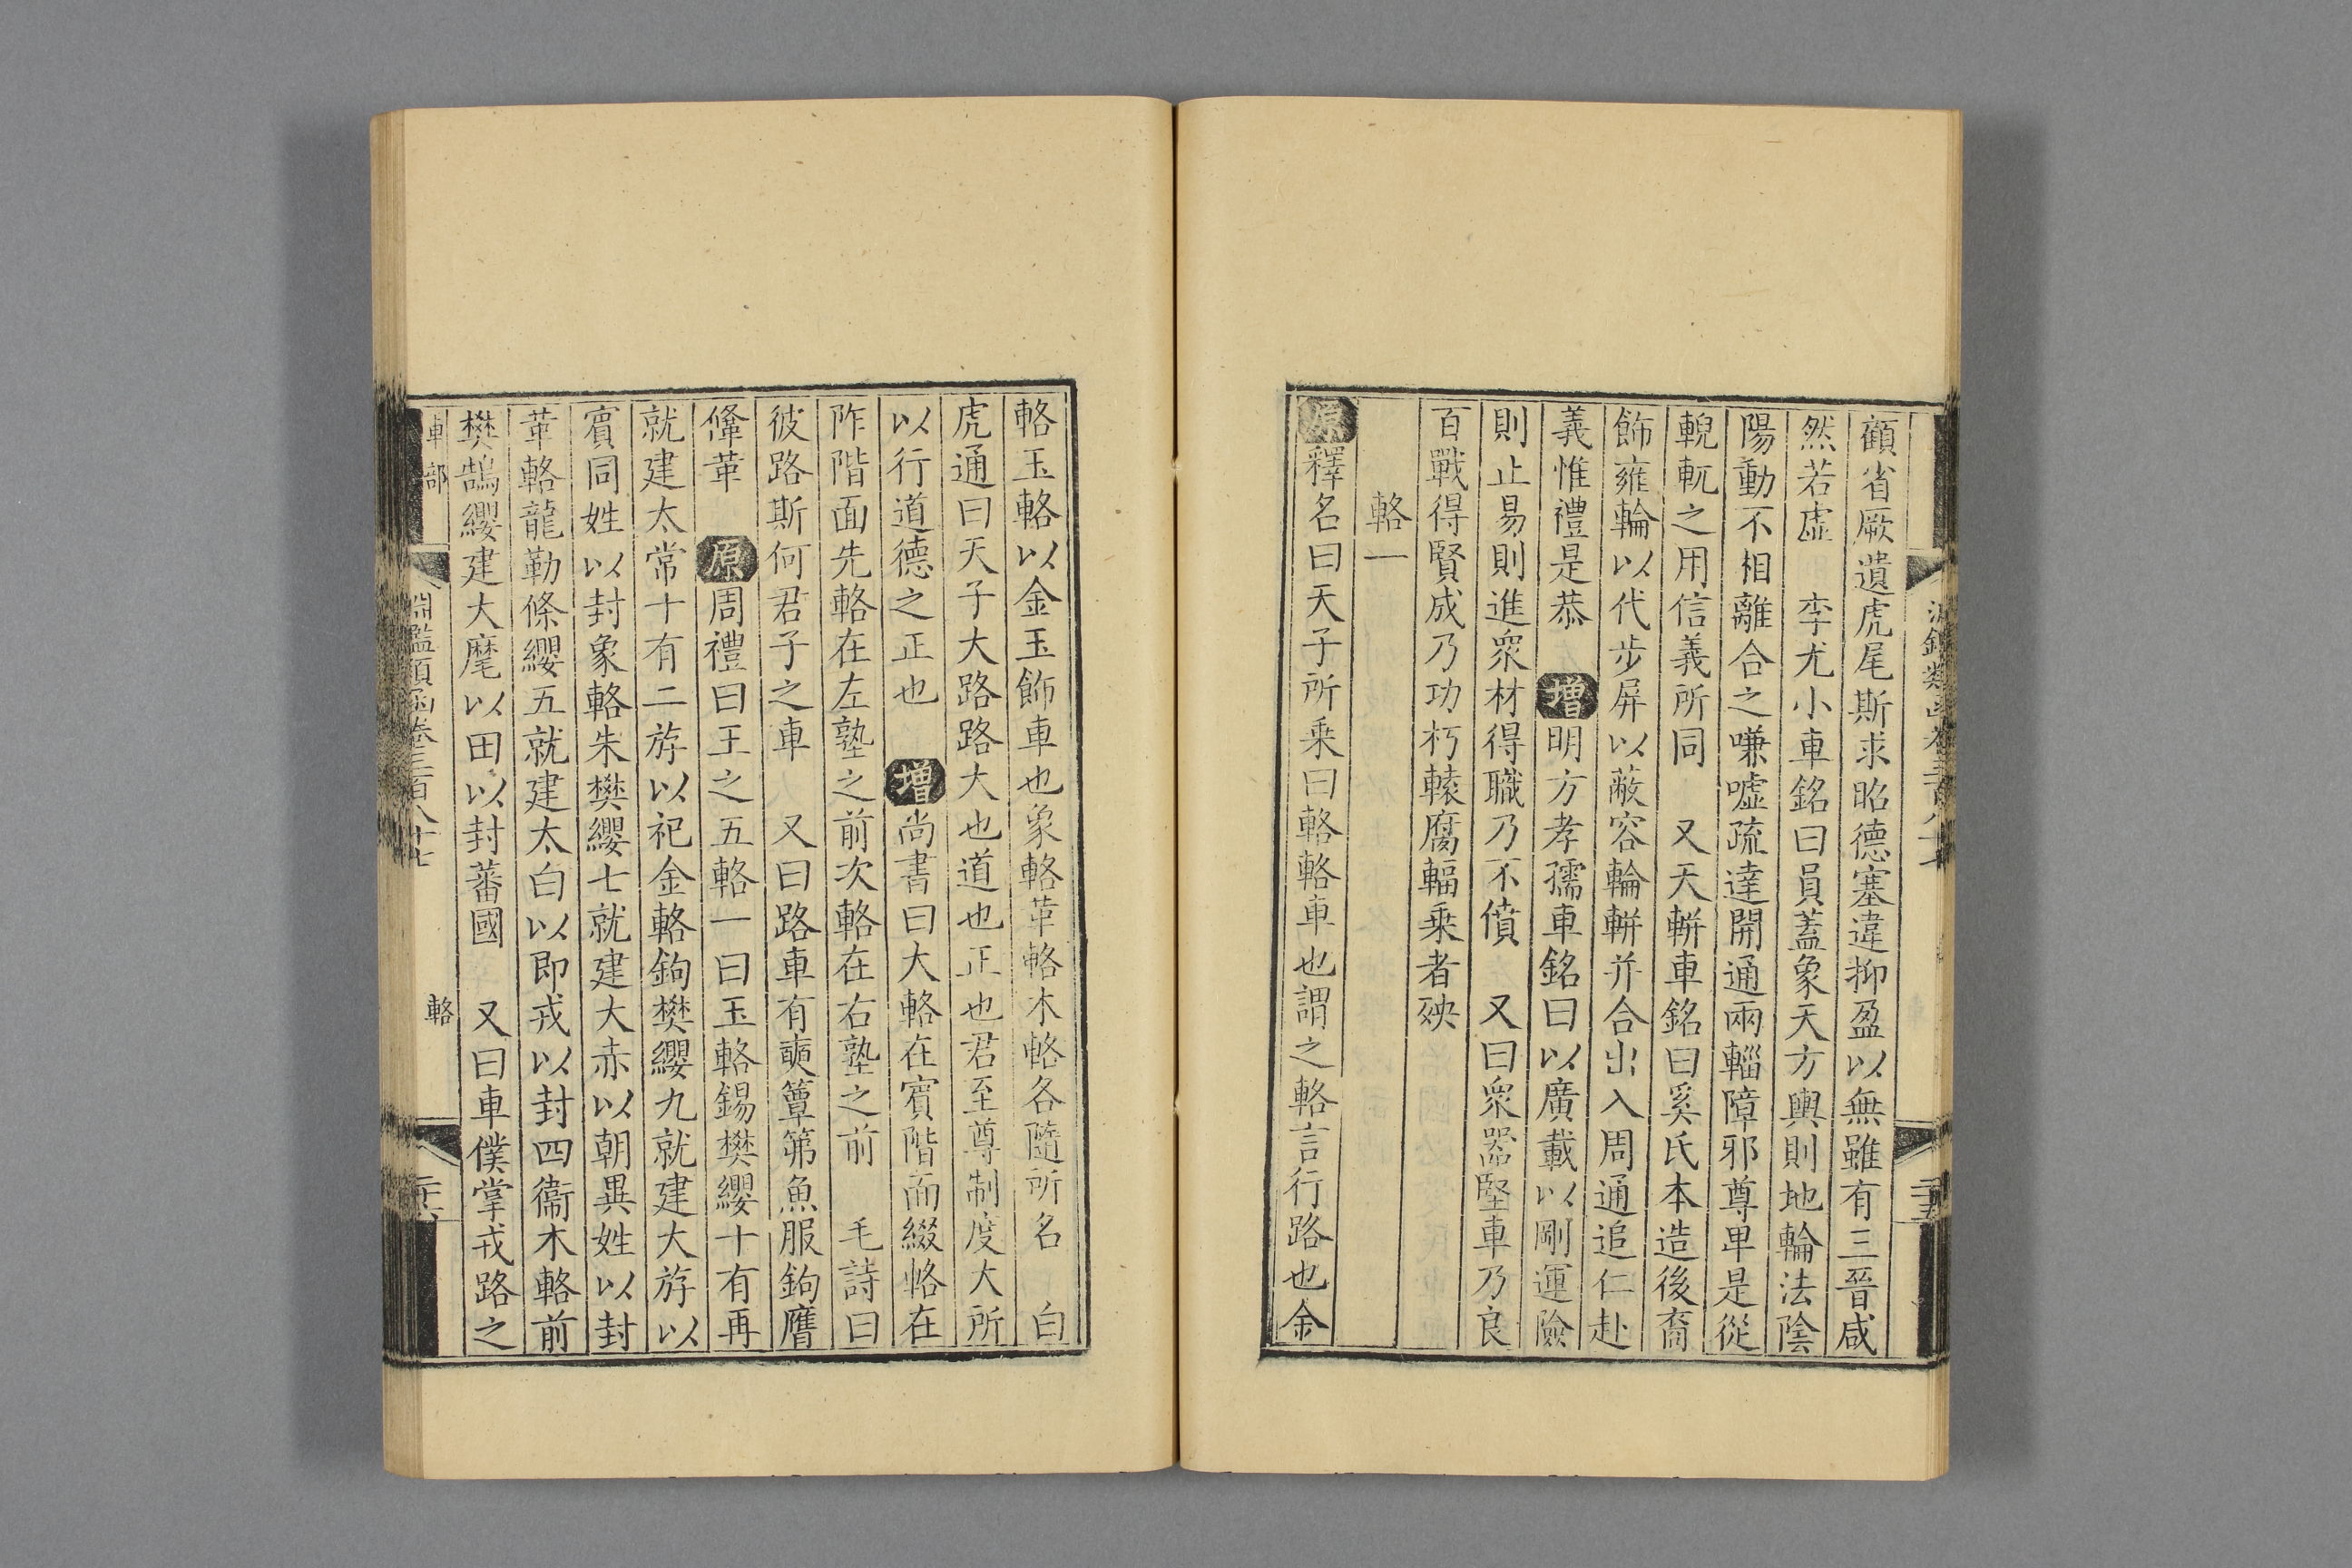 顧省厥遺虎尾斯求昭德塞違抑盈以無雖有三晉咸
然若虛　李尤小車銘曰員蓋象天方輿則地輪法陰
陽動不相離合之嗛噓疏達開通兩輜障邪尊卑是從
輗軏之用信義所同　又天軿車銘曰奚氏本造後裔
飾雍輪以代步屏以蔽容輪軿并合出入周通追仁赴
義惟禮是恭　增明方孝孺車銘曰以廣載以剛運險
則止易則進衆材得職乃不僨　又曰衆器堅車乃良
百戰得賢成乃功朽轅腐輻乘者殃
輅一
原釋名曰天子所乘曰輅輅車也謂之輅言行路也金
輅玉輅以金玉飾車也象輅革輅木輅各隨所名　白
虎通曰天子大路路大也道也正也君至尊制度大所
以行道德之正也　增尚書曰大輅在賓階面綴輅在
阼階面先輅在左塾之前次輅在右塾之前　毛詩曰
彼路斯何君子之車　又曰路車有奭簟笰魚服鉤膺
鞗革　原周禮曰王之五輅一曰玉輅錫樊纓十有再
就建太常十有二斿以祀金輅鉤樊纓九就建大斿以
賓同姓以封象輅朱樊纓七就建大赤以朝異姓以封
革輅龍勒條纓五就建太白以即戎以封四衞木輅前
樊鵠纓建大麾以田以封蕃國　又曰車僕掌戎路之
車部　淵鑑類函卷三百八十七　輅　二十六